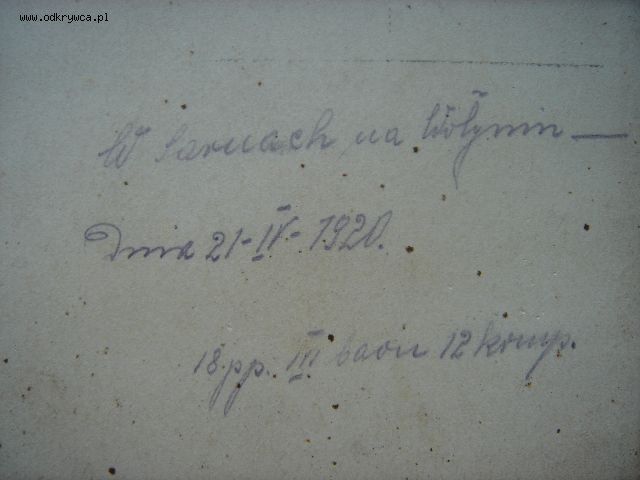 www.odkrywca.pl
W Sarnach na Wołyniu —
Dnia 21-IV-1920.
18 pp. III baon 12 komp.